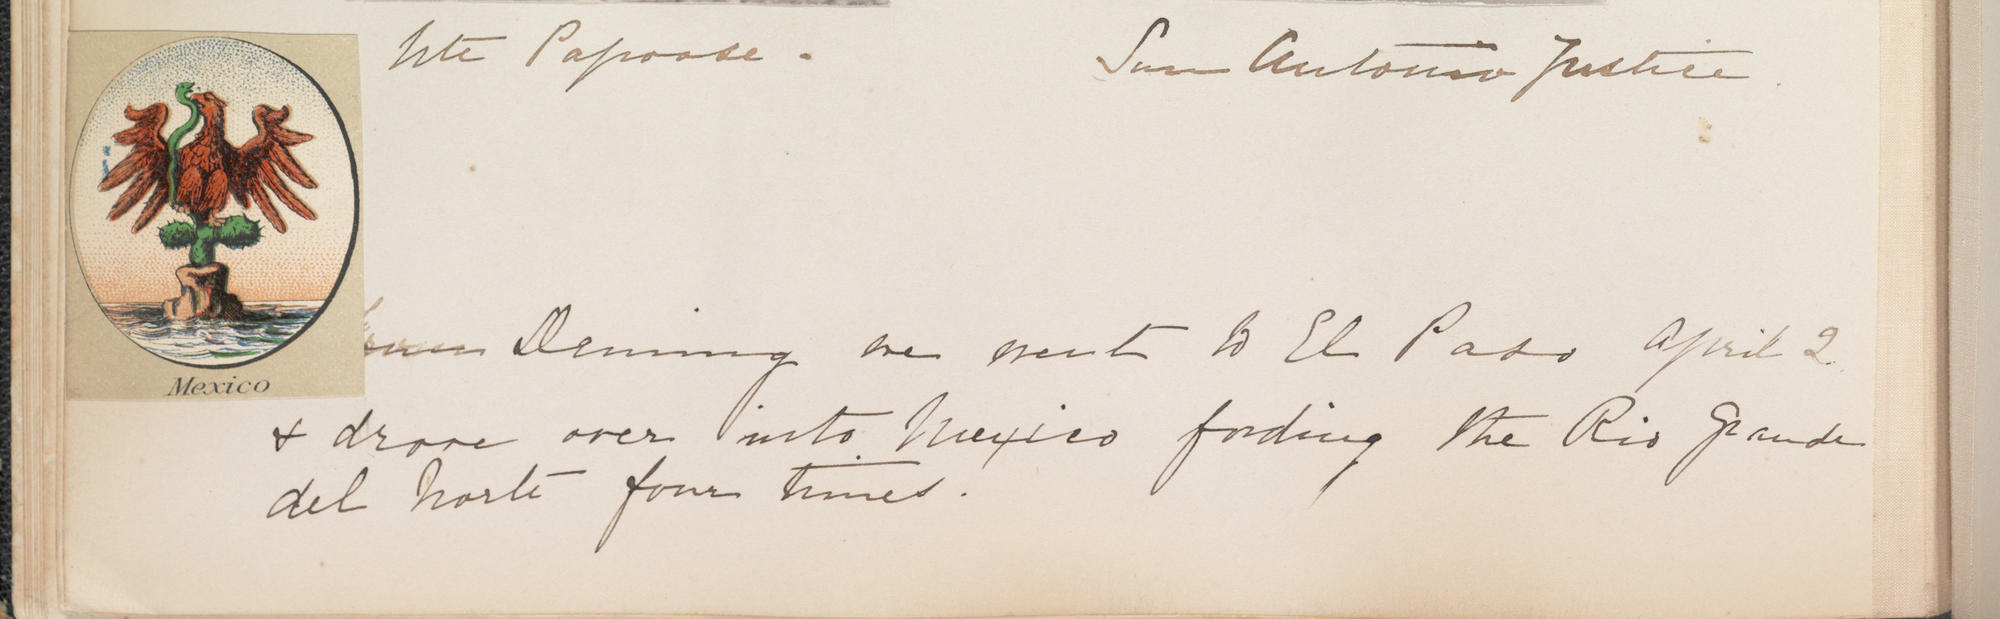 Ute Papoose.
San Antonio Justice.
Mexico
From Deming we went to El Paso April 2
& drove over into Mexico fording the Rio Grande
del Norte four times.